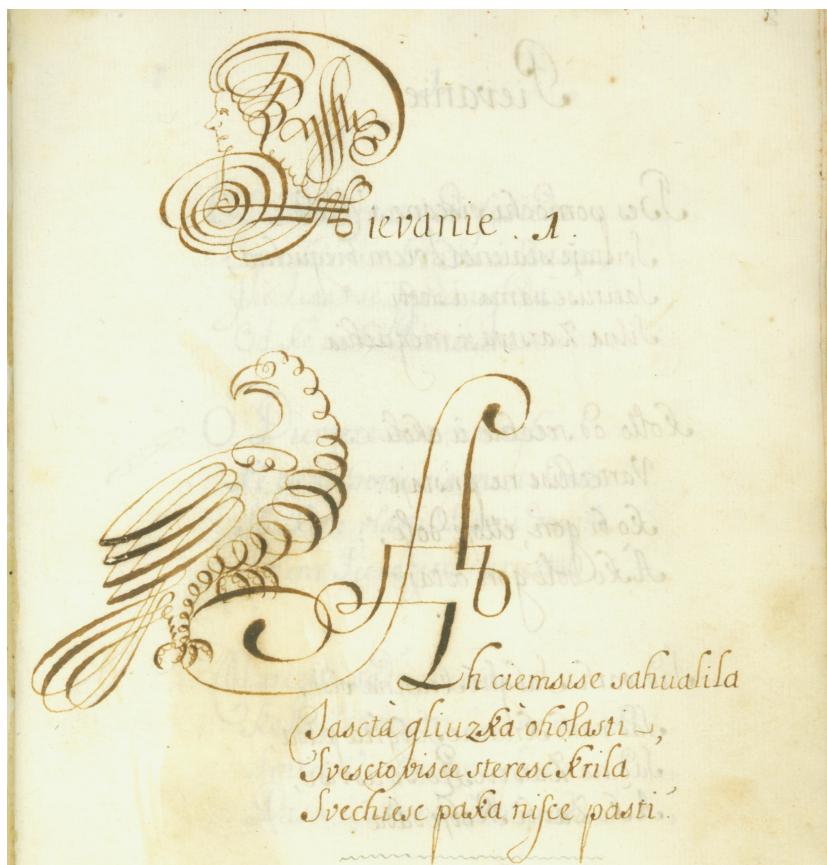 Pievanie . 1.
Ah ciemsise sahualila
Tasctà gliuzkà oholasti,
Svescto visce steresc krila
Svechiesc paka nisce pasti.